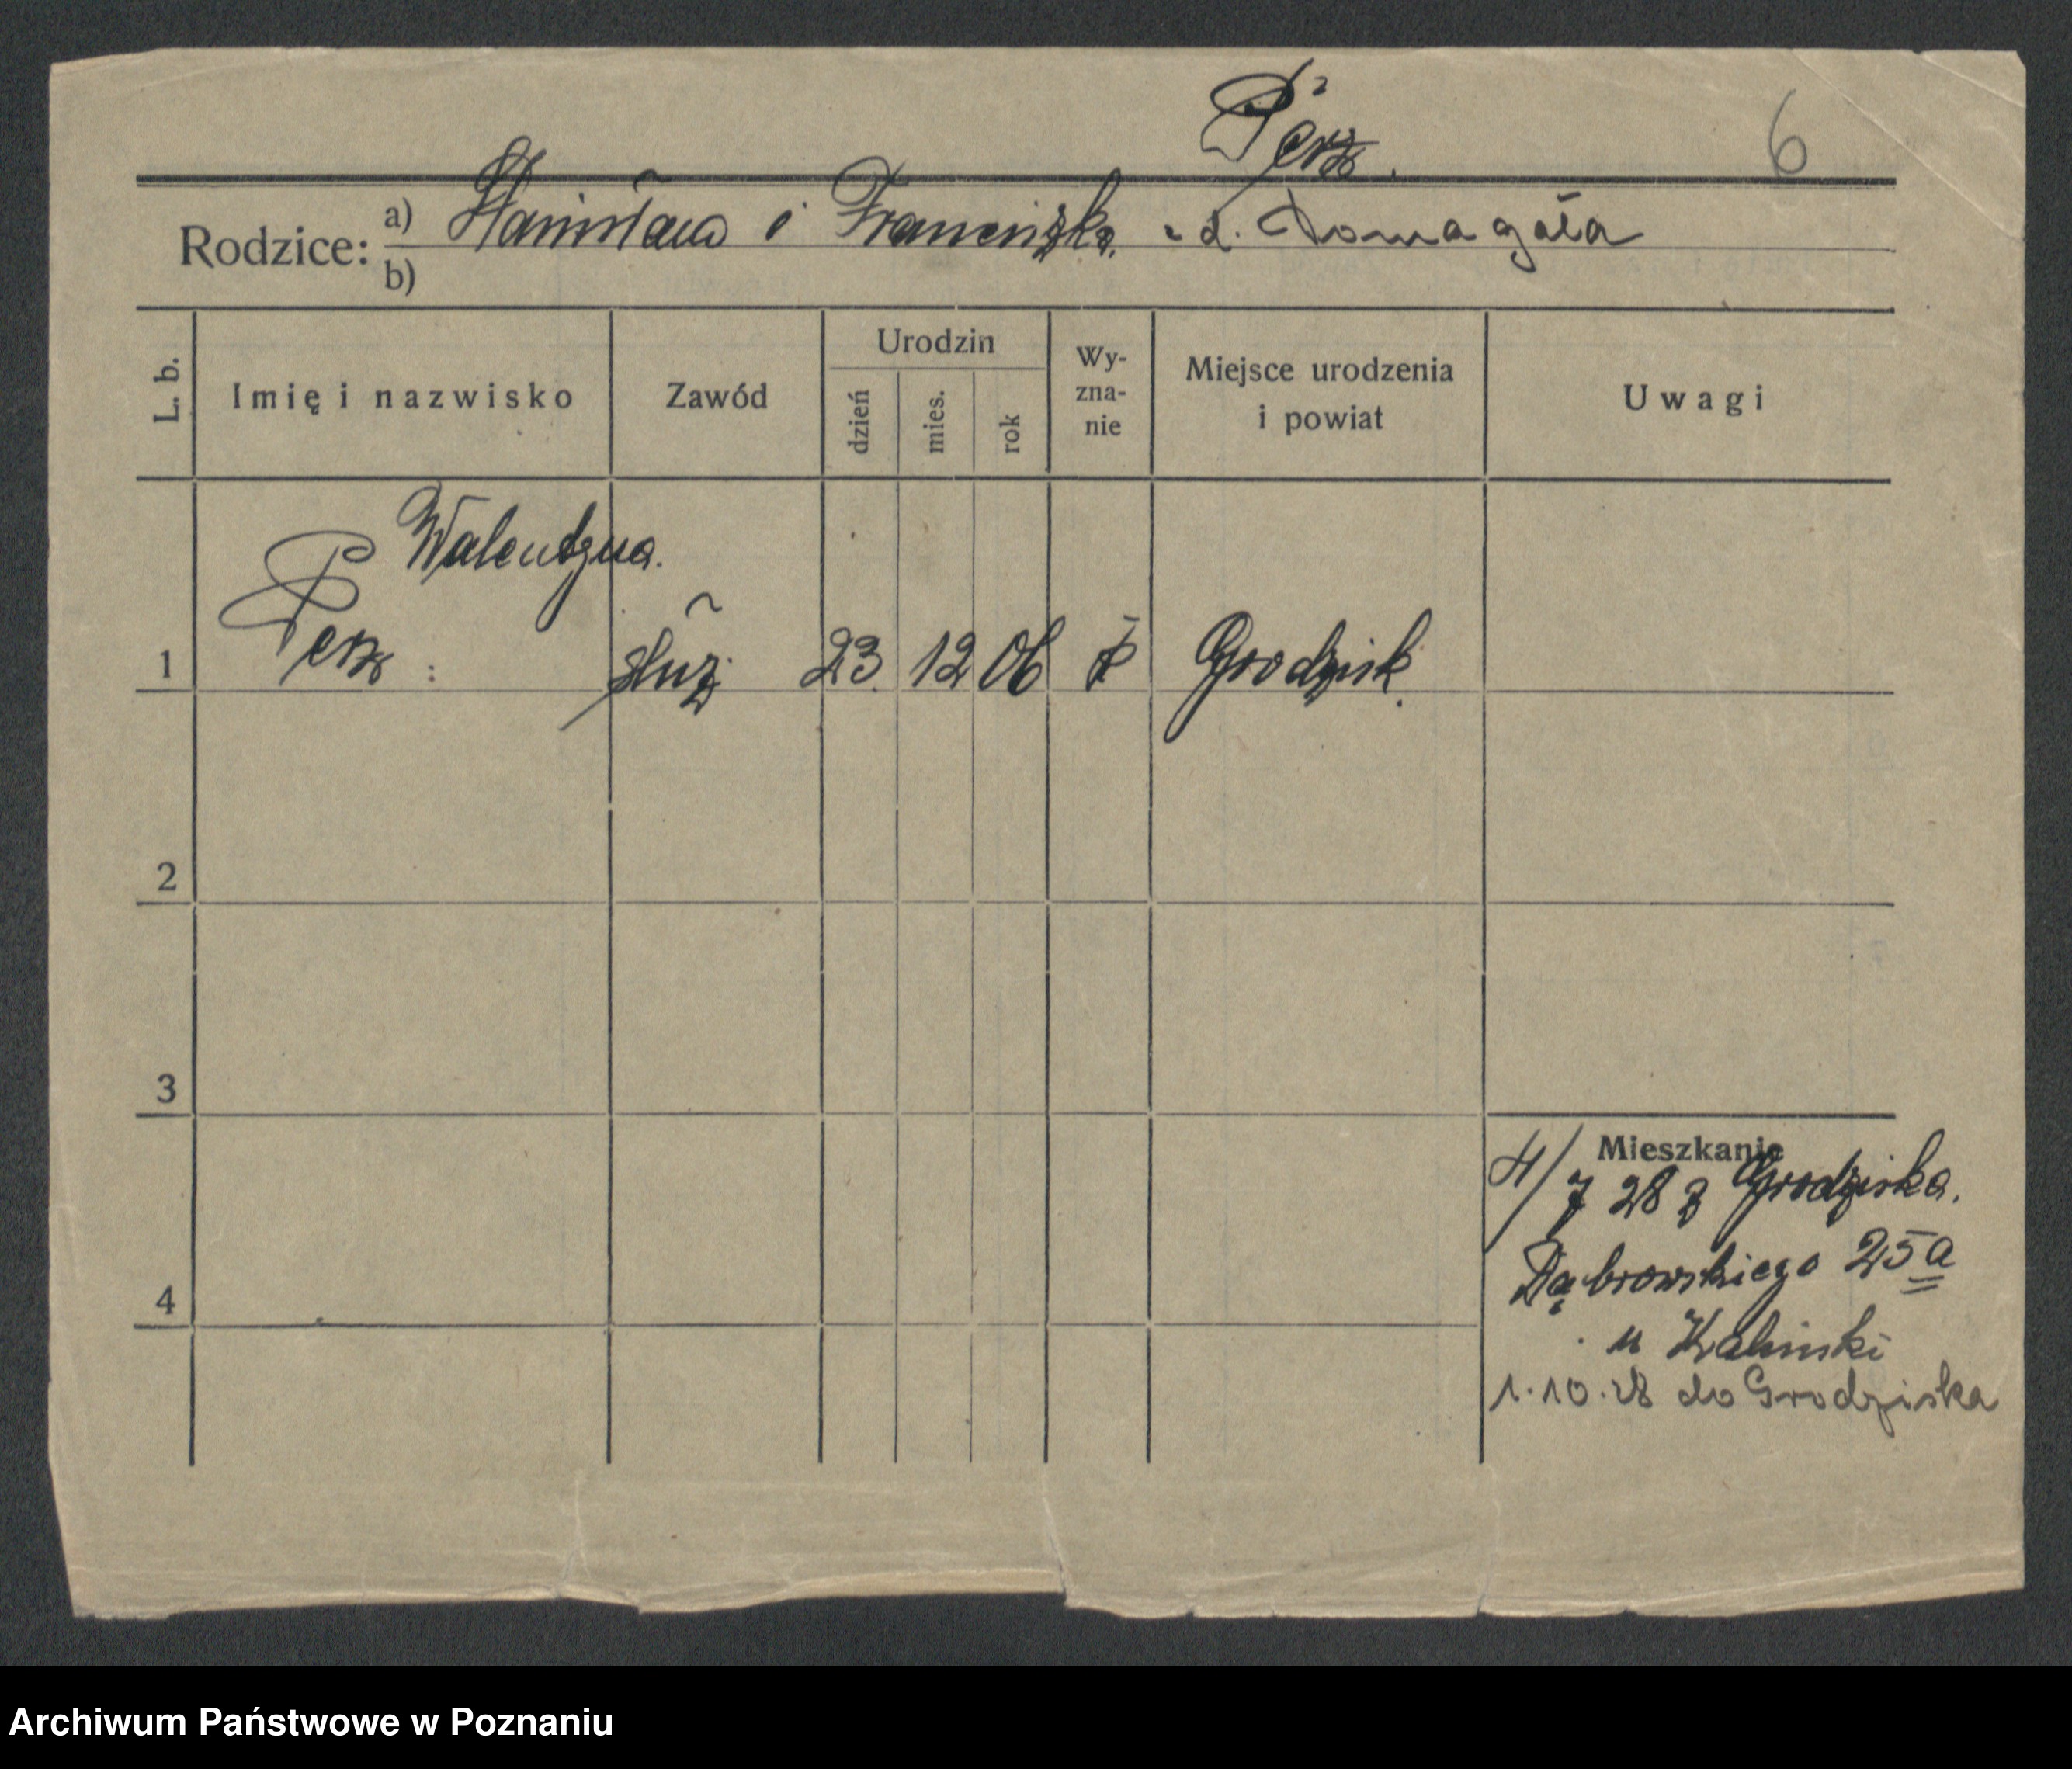 Perz.
6
Rodzice: a) Stanisław i Franciszka z d. Domagała
b)
L. b.
Imię i nazwisko
Zawód
Urodzin
dzień
mies.
rok
Wy-
zna-
nie
Miejsce urodzenia
i powiat
Uwagi
Walentyna.
1 Perz : służ. 23. 12 06 Grodzisk.
2
3
4
Mieszkanie
4/7 28 z Grodziska.
Dąbrowskiego 25a
u Kaliński
1.10.28 do Grodziska
Archiwum Państwowe w Poznaniu